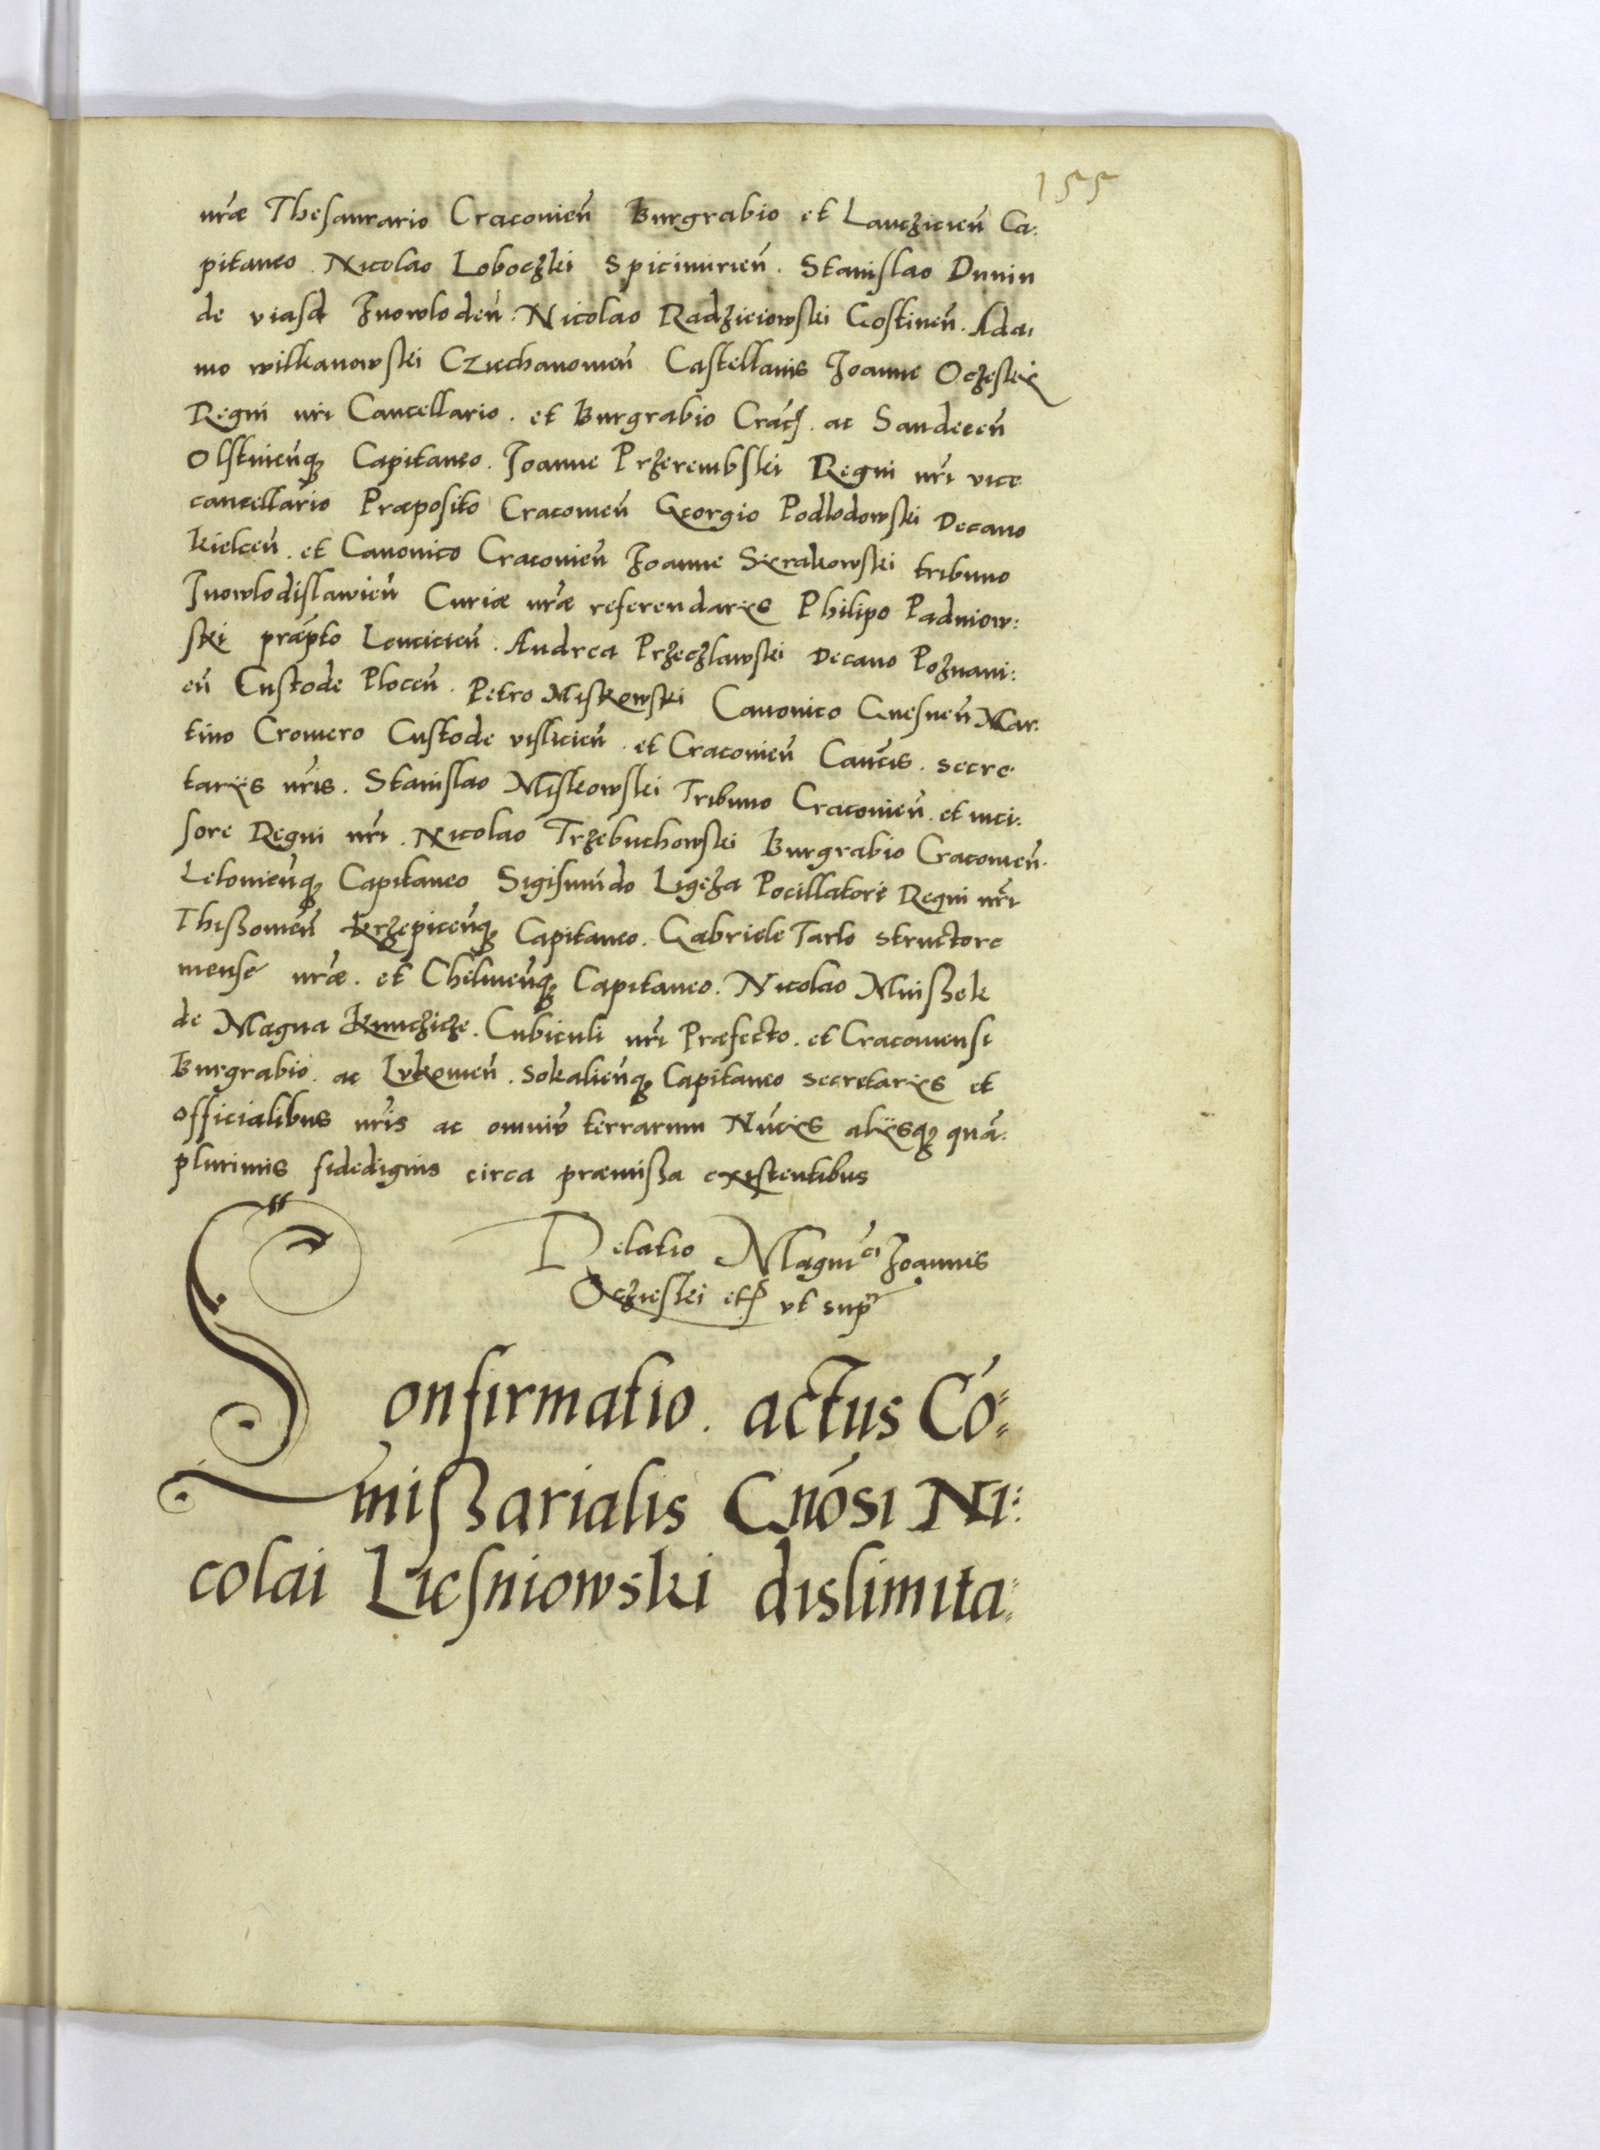 155
nr̃æ Thesaurario Cracovieñ Burgrabio et Lanczicieñ Ca:
pitaneo. Nicolao Loboczki Spicimirieñ. Stanislao Dunin
de viasd Inowlodeñ. Nicolao Radzieiowski Gostineñ. Ada:
mo wilkanowski Cziechanowieñ Castellanis Joanne Oczeskij
Regni nr̃i Cancellario. et Burgrabio Crac̃. ac Sandeceñ
Olstinieñq3 Capitaneo. Joanne Przerembski Regni nr̃i vice
cancellario Præposito Cracovieñ Georgio Podlodowski Decano
kielceñ. et Canonico Cracovieñ Joanne Sierakowski tribuno
Inowlodislavieñ Curiæ nr̃æ referendarijs Philipo Padniow:
ski præpto Lencicieñ. Andrea Przeczlawski Decano Poznani:
eñ Custode Ploceñ. Petro Miskowski Canonico Gnesneñ Mar:
tino Cromero Custode vislicieñ. et Cracovieñ Canc̃is. secre
tarijs nr̃is. Stanislao Miskowski Tribuno Cracovieñ. et inci:
sore Regni nr̃i. Nicolao Trzebuchowski Burgrabio Cracovieñ.
Lelovieñq3 Capitaneo Sigismũdo Ligęza Pocillatore Regni nr̃i
Thiszovieñ krzepiceñq3 Capitaneo. Gabriele Tarlo structore
mensę nr̃æ. et Chelmeñq3 Capitaneo. Nicolao Mniszek
de Magna kunczicze. Cubiculi nr̃i Præfecto. et Cracoviensi
Burgrabio. ac Lukovieñ. Sokalieñq3 Capitaneo secretarijs et
officialibus nr̃is ac omniũ terrarum Nũcijs alijsq3 quã:
plurimis fidedignis circa præmissa existentibus
Relatio Magnici Joannis
Oczieski etc̃ vt supr
Confirmatio. actus Cõ:
missarialis Gñosi Ni:
colai Liesniowski dislimita: